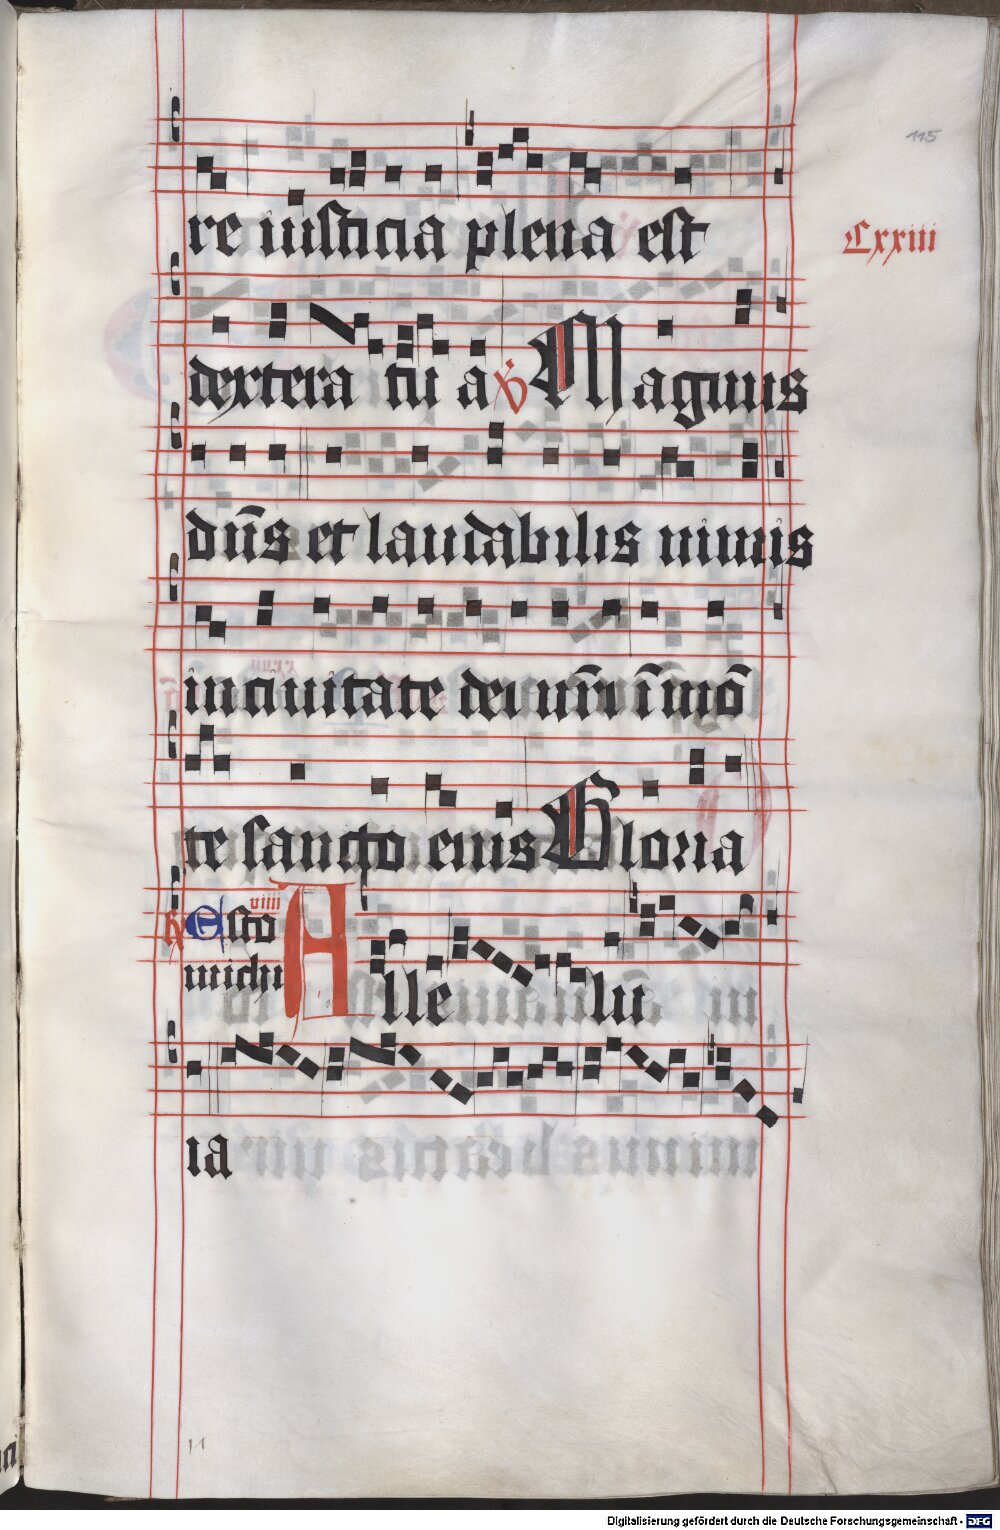 115
re iusticia plena est
Cxxiii
dextera tu a ℣ Magnus
dn̄s et laudabilis nimis
in ciuitate dei nr̄i ī mō
te sancto eius Gloria
viiii
℟ Esto
michi
Alle lu
ia
11
Digitalisierung gefördert durch die Deutsche Forschungsgemeinschaft - DFG